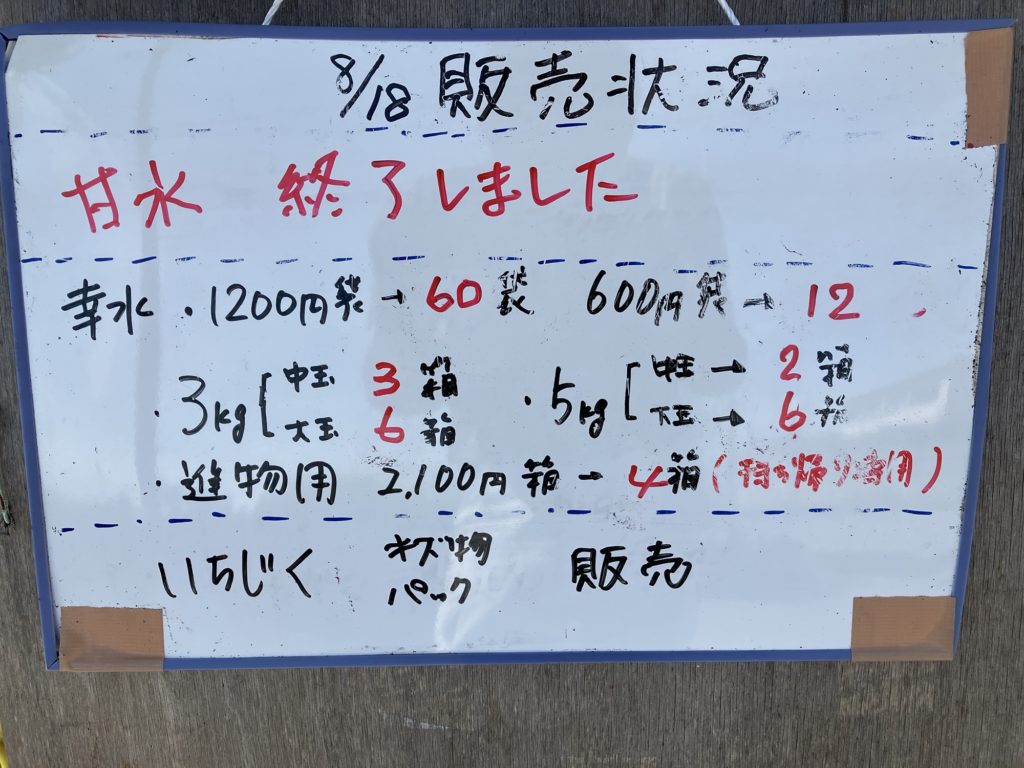 8/18 販売状況
甘水 終了しました
幸水 ・1200円袋→60袋 600円袋→12
・3kg [ 中玉 3箱 ・5kg [ 中玉→2箱
大玉 6箱 大玉→6箱
・進物用 2,100円箱→4箱(持ち帰り専用)
いちじく キズ物パック 販売